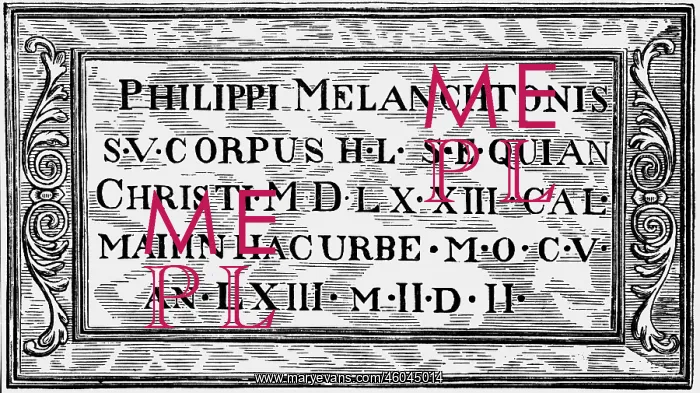 PHILIPPI MELANCHTONIS
S·V·CORPUS H·L· S·E·QUI AN
CHRISTI·M D·L X·XIII·CAL·
MAII IN HAC URBE ·M·O·C·V·
AN·LXIII· M·II·D·II·
ME
PL
ME
PL
www.maryevans.com/46045014